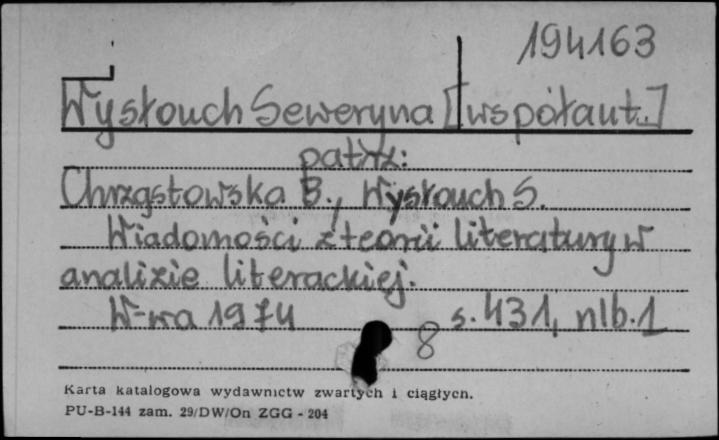 194163
Wysłouch Seweryna [współaut.]
patrz:
Chrząstowska B., Wysłouch S.
Wiadomości z teorii literatury w
analizie literackiej.
W-wa 1974 s. 431, nlb. 1
8
Karta katalogowa wydawnictw zwartych i ciągłych.
PU-B-144 zam. 29/DW/On ZGG - 204